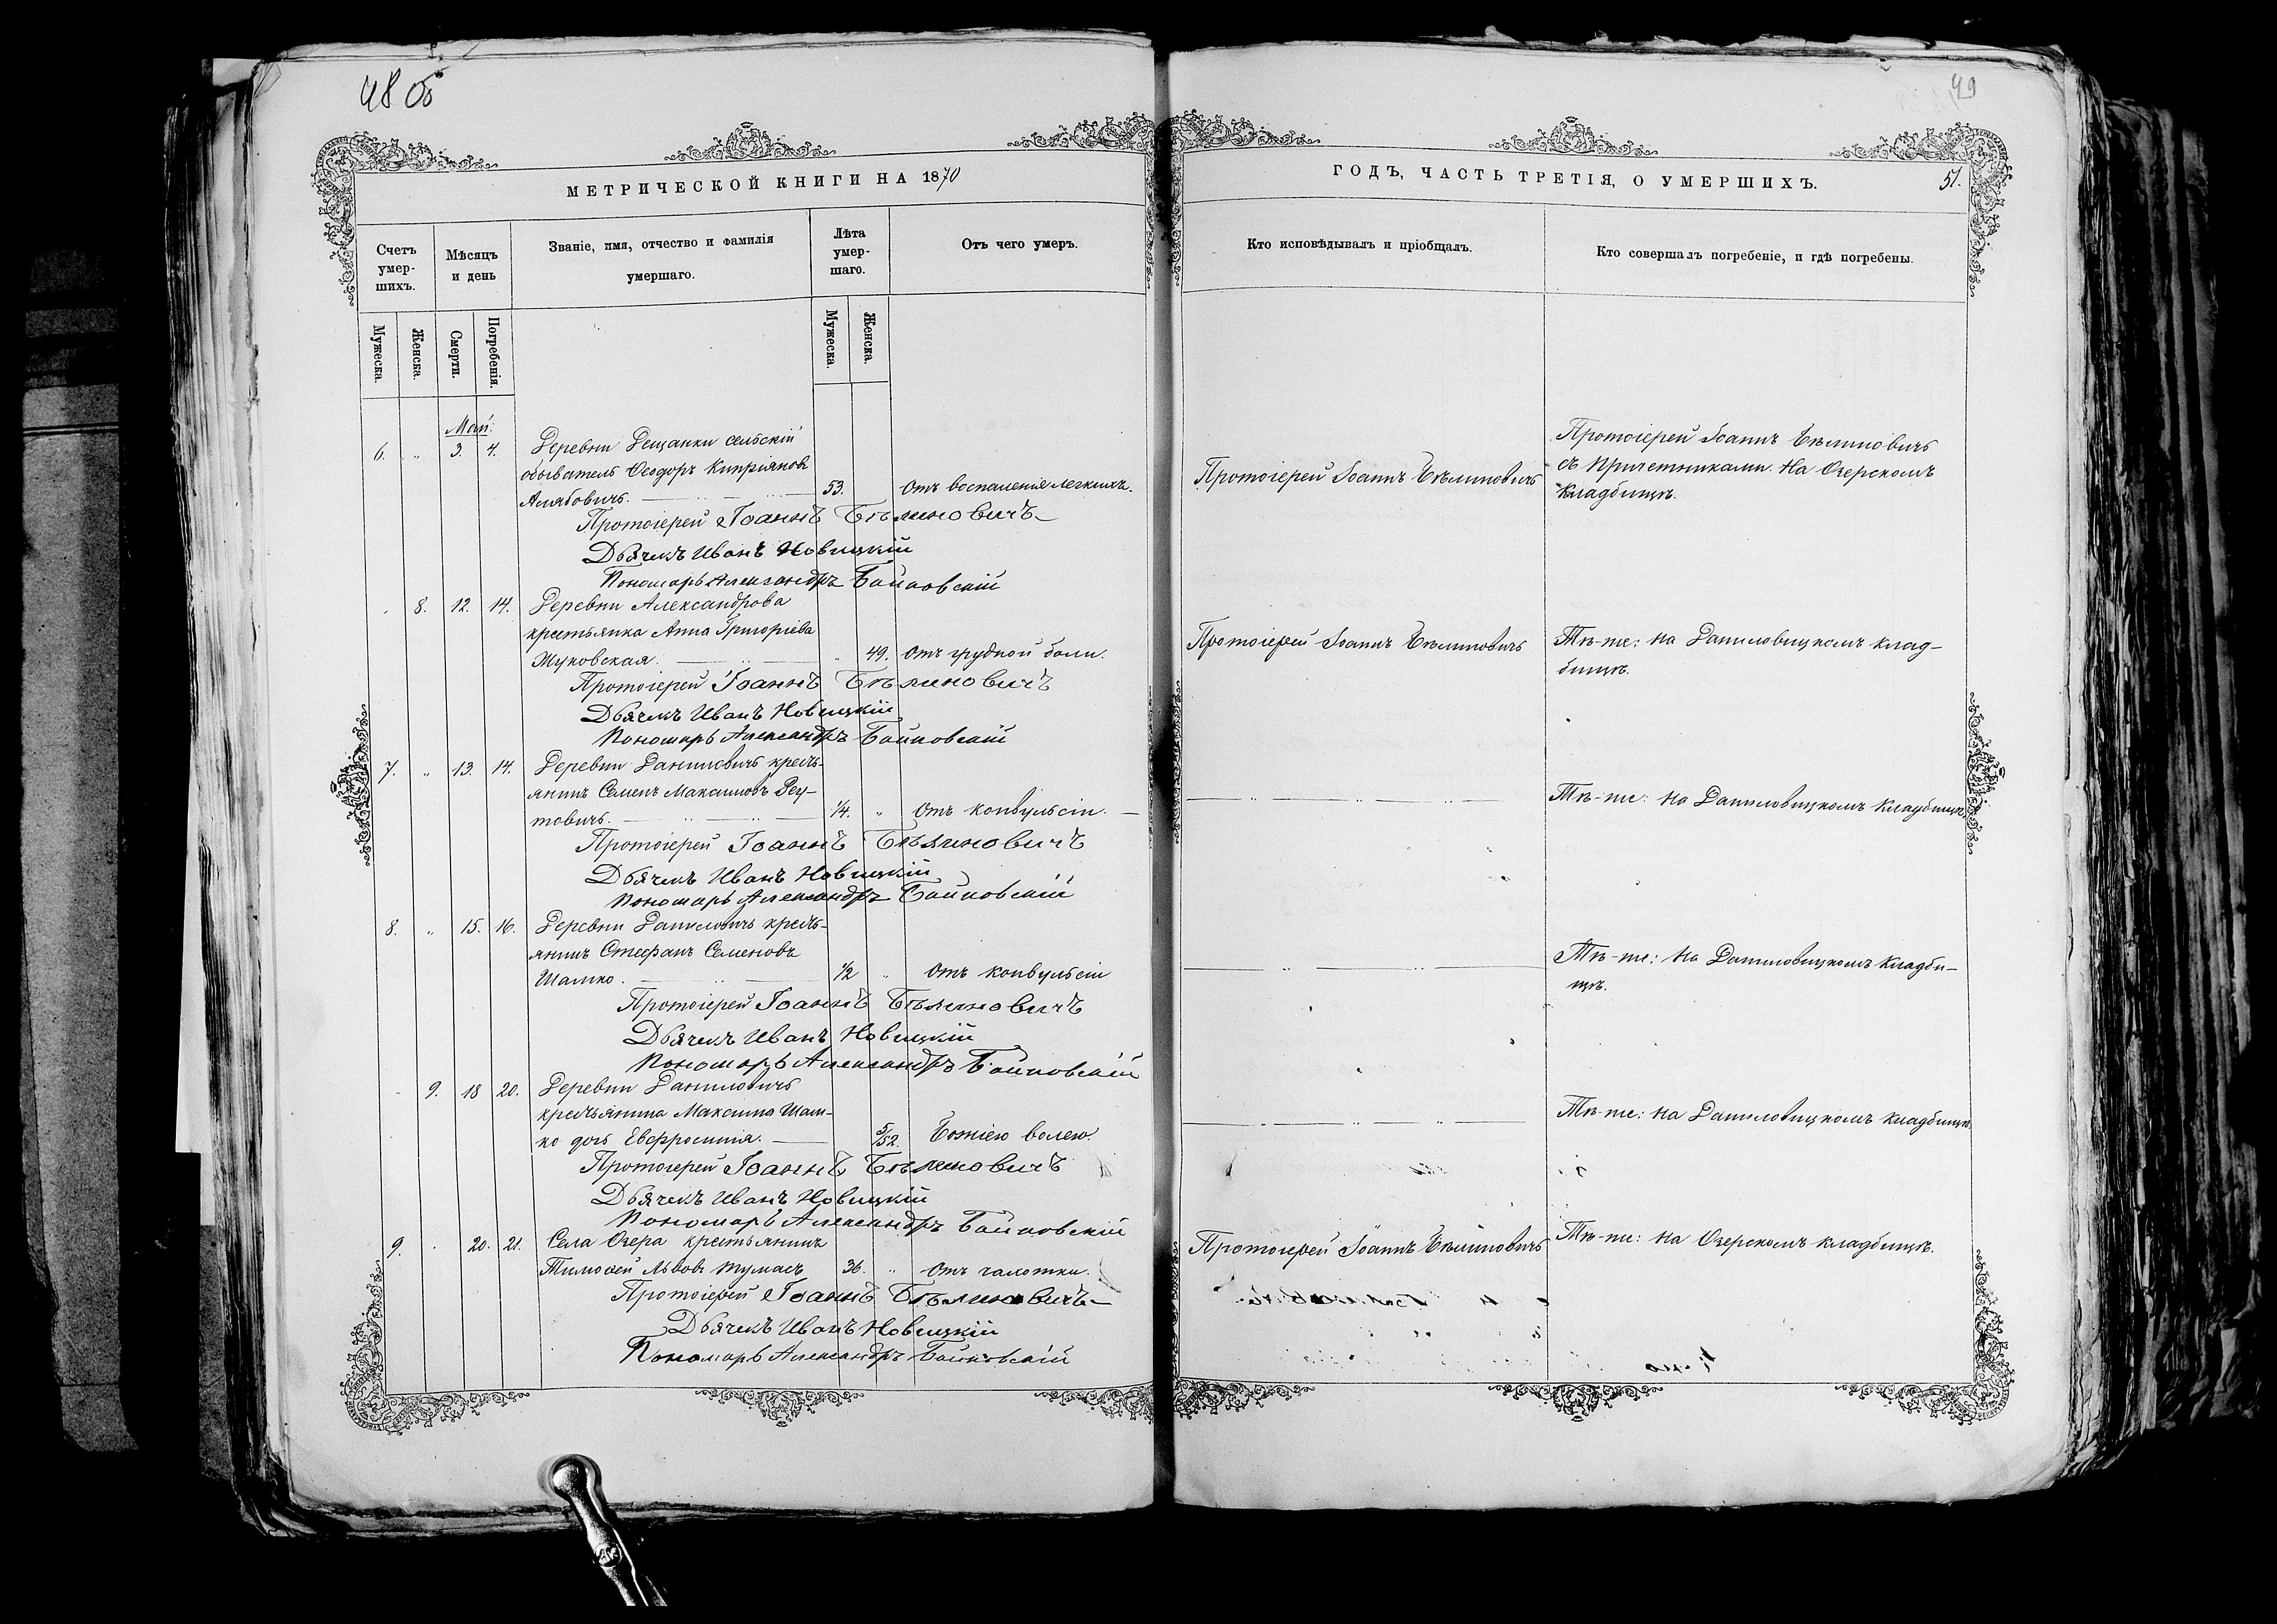 48 об
49
МЕТРИЧЕСКОЙ КНИГИ НА 1870
ГОДЪ, ЧАСТЬ ТРЕТІЯ, О УМЕРШИХЪ.
51.
Счетъ умер-шихъ.
Мѣсяцъ и день
Званіе, имя, отчество и фамилія умершаго.
Лѣта умер-шаго.
Отъ чего умеръ.
Кто исповѣдывалъ и пріобщалъ.
Кто совершалъ погребеніе, и гдѣ погребены.
Мужеска.
Женска.
Смерти.
Погребенія.
Мужеска.
Женска.
Май.
6. " 3. 4. Деревни Лещанки сельскій
обыватель Ѳеодоръ Кипріяновъ
53. Отъ воспаленія легкихъ.
Протоіерей Іоаннъ Бѣлиновичъ
Протоіерей Іоаннъ Бѣлиновичъ
съ Причетниками. На Озерскомъ
кладбищѣ.
Протоіерей Іоаннъ Бѣлиновичъ
Дьячекъ Иванъ Новицкій
Пономарь Александръ Байковскій
8. 12. 14. Деревни Александрова
крестьянка Анна Григоріева
Жуковская. 49. Отъ грудной боли.
Протоіерей Іоаннъ Бѣлиновичъ
Тѣ-же: на Даниловицкомъ клад-
бищѣ.
Протоіерей Іоаннъ Бѣлиновичъ
Дьячекъ Иванъ Новицкій
Пономарь Александръ Байковскій
7. " 13. 14. Деревни Даниловичъ кресть-
янинъ Семенъ Максимовъ Реу-
товичъ. 1/4. " Отъ конвульсіи.
Тѣ-же: на Даниловицкомъ кладбищѣ
Протоіерей Іоаннъ Бѣлиновичъ
Дьячекъ Иванъ Новицкій
Пономарь Александръ Байковскій
8. " 15. 16. Деревни Даниловичъ кресть-
янинъ Стефанъ Семеновъ
Шамко. 1/2 " Отъ конвульсіи
Тѣ-же: на Даниловицкомъ кладби-
щѣ.
Протоіерей Іоаннъ Бѣлиновичъ
Дьячекъ Иванъ Новицкій
Пономарь Александръ Байковскій
" 9. 18 20. Деревни Даниловичъ
крестьянина Максима Шам-
ко дочь Евфросинія. 5/52. Божіею волею.
Тѣ-же: на Даниловицкомъ кладбищѣ
Протоіерей Іоаннъ Бѣлиновичъ
Дьячекъ Иванъ Новицкій
Пономарь Александръ Байковскій
9. 20. 21. Села Озера крестьянинъ
Тимоѳей Львовъ Тумасъ 36. " Отъ чахотки.
Протоіерей Іоаннъ Бѣлиновичъ
Тѣ-же: на Озерскомъ кладбищѣ.
Протоіерей Іоаннъ Бѣлиновичъ
Дьячекъ Иванъ Новицкій
Пономарь Александръ Байковскій